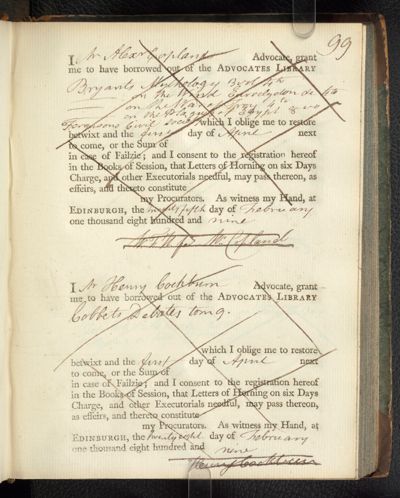 99
I Mr Alexr Copland Advocate, grant
me to have borrowed out of the ADVOCATES LIBRARY
Bryants Mythology
on the Wind Euroclydon
on the War of Troy 4to
on the Plagues of Egypt
Fergusons Civil which I oblige me to restore
betwixt and the first day of April next
to come, or the Sum of
in case of Failzie; and I consent to the registration hereof
in the Books of Session, that Letters of Horning on six Days
Charge, and other Executorials needful, may pass thereon, as
effeirs, and thereto constitute
my Procurators. As witness my Hand, at
EDINBURGH, the twenty fifth day of February
one thousand eight hundred and nine
for Mr Copland
I Mr Henry Cockburn Advocate, grant
me to have borrowed out of the ADVOCATES LIBRARY
Cobbets Debates tom 9.
which I oblige me to restore
betwixt and the first day of April next
to come, or the Sum of
in case of Failzie; and I consent to the registration hereof
in the Books of Session, that Letters of Horning on six Days
Charge, and other Executorials needful, may pass thereon, as
effeirs, and thereto constitute
my Procurators. As witness my Hand, at
EDINBURGH, the twenty eight day of February
one thousand eight hundred and nine
Henry Cockburn